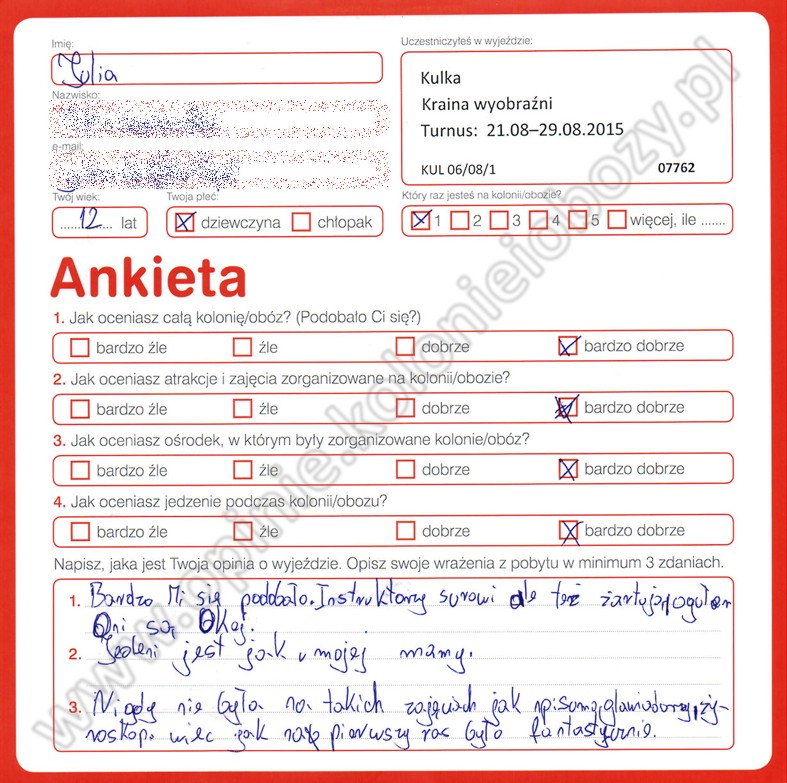 Imię:
Julia
Uczestniczyłeś w wyjeździe:
Kulka
Kraina wyobraźni
Turnus: 21.08–29.08.2015
KUL 06/08/1 07762
Nazwisko:
e-mail:
Twój wiek:
12 lat
Twoja płeć:
dziewczyna chłopak
Który raz jesteś na kolonii/obozie?
1 2 3 4 5 więcej, ile .......
Ankieta
1. Jak oceniasz całą kolonię/obóz? (Podobało Ci się?)
bardzo źle źle dobrze bardzo dobrze
2. Jak oceniasz atrakcje i zajęcia zorganizowane na kolonii/obozie?
bardzo źle źle dobrze bardzo dobrze
3. Jak oceniasz ośrodek, w którym były zorganizowane kolonie/obóz?
bardzo źle źle dobrze bardzo dobrze
4. Jak oceniasz jedzenie podczas kolonii/obozu?
bardzo źle źle dobrze bardzo dobrze
Napisz, jaka jest Twoja opinia o wyjeździe. Opisz swoje wrażenia z pobytu w minimum 3 zdaniach.
1. Bardzo Mi się podobało. Instruktorzy surowi ale też żartują, ogułem
Oni są Okej.
2. jest jak u mojej mamy.
3. Nigdy nie była na takich zajęciach jak ży-
roskop. więc jak na pierwszy raz było fantastycznie.
www.opinie.kolonieiobozy.pl